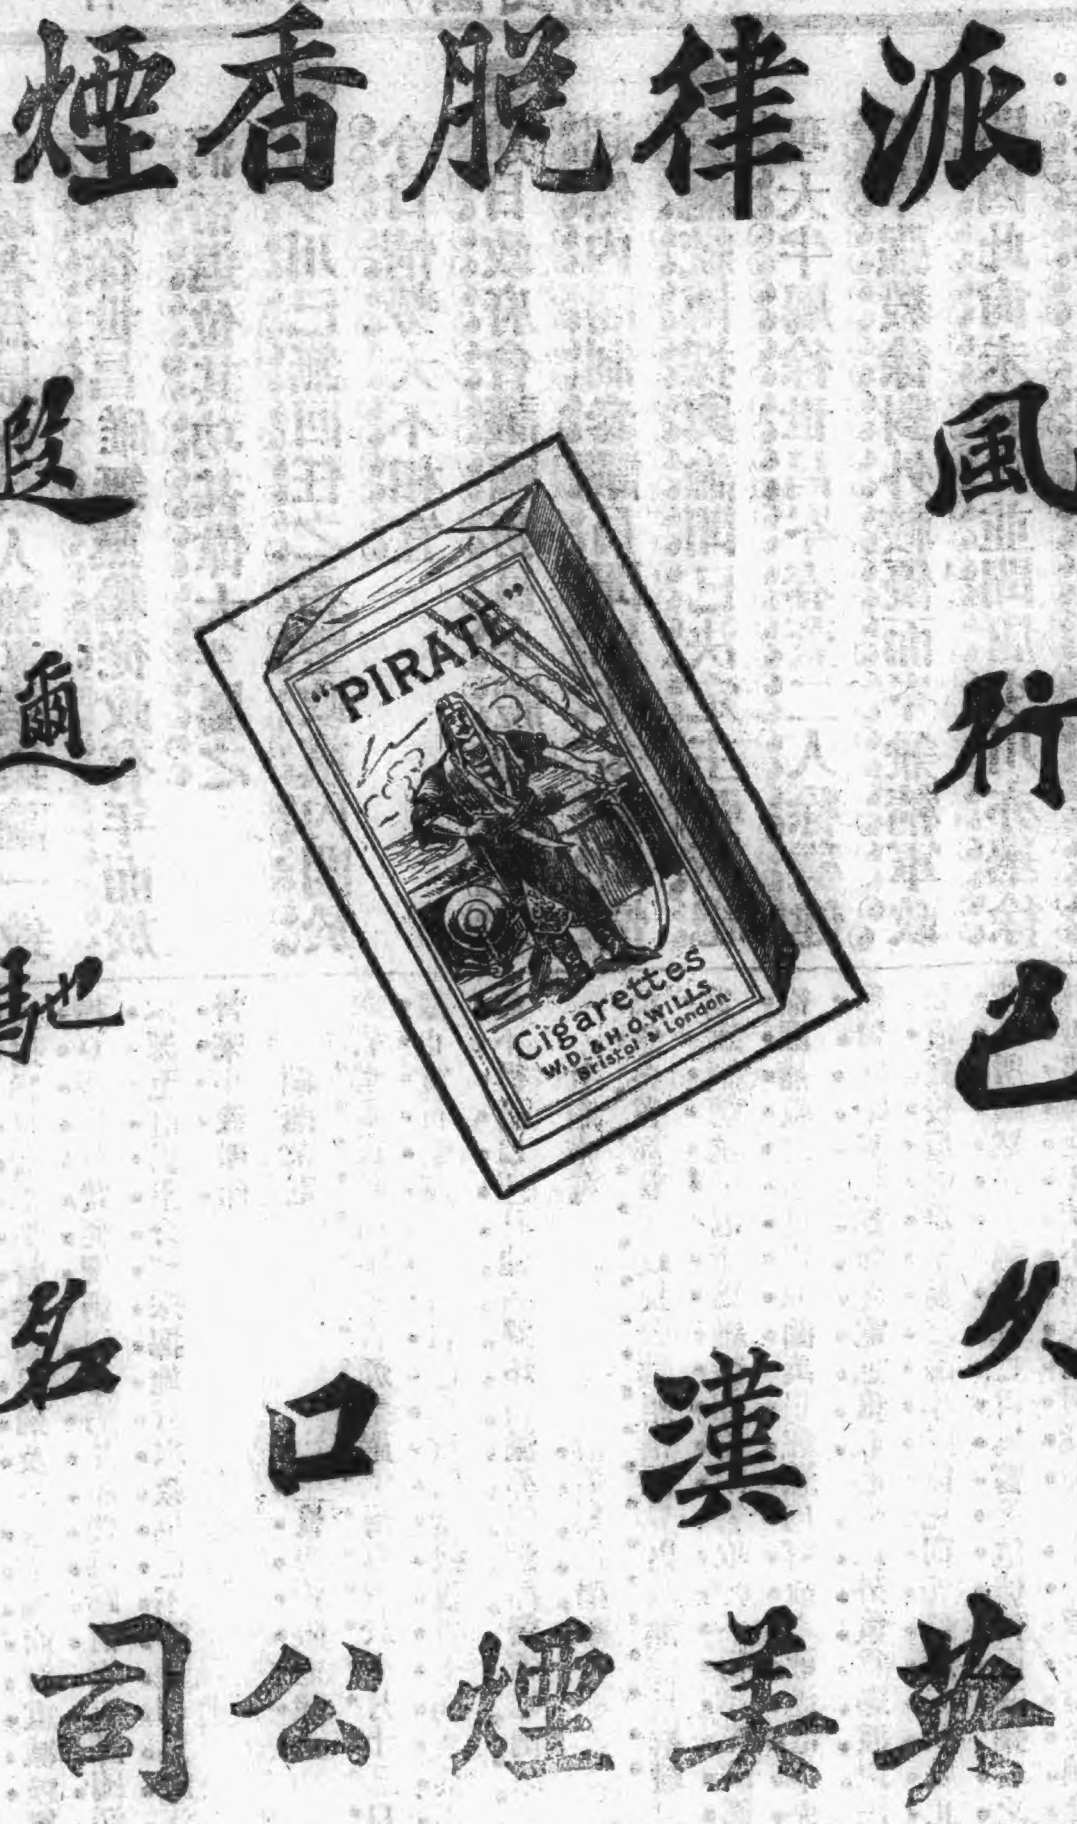 派律脫香煙
風行已久
遐邇馳名
"PIRATE"
Cigarettes
W.D. & H.O. WILLS
Bristol & London
漢口
英美煙公司